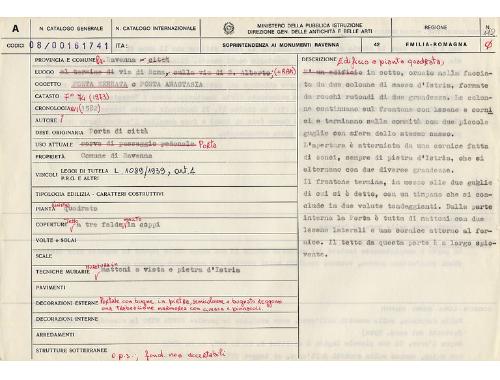 A
N. CATALOGO GENERALE
N. CATALOGO INTERNAZIONALE
MINISTERO DELLA PUBBLICA ISTRUZIONE
DIREZIONE GEN. DELLE ANTICHITÀ E BELLE ARTI
REGIONE
N.
CODICI
08/00161741
ITA:
SOPRINTENDENZA AI MONUMENTI RAVENNA
42
EMILIA-ROMAGNA
PROVINCIA E COMUNE: Ravenna - città
LUOGO al termine di via di Roma, sulla via di S. Alberto
OGGETTO PORTA SERRATA o PORTA ANASTASIA
CATASTO F° 74 (1973)
CRONOLOGIA (1582)
AUTORE ?
DEST. ORIGINARIA Porta di città
USO ATTUALE varco di passaggio pedonale Porta
PROPRIETÀ Comune di Ravenna
VINCOLI LEGGI DI TUTELA L. 1089/1939, art. 4
P.R.G. E ALTRI
TIPOLOGIA EDILIZIA - CARATTERI COSTRUTTIVI
PIANTA Quadrato
COPERTURE a tre falde, in coppi
VOLTE o SOLAI
SCALE
TECNICHE MURARIE mattoni a vista e pietra d'Istria
PAVIMENTI
DECORAZIONI ESTERNE Portale con bugne in pietra, semicolonne a bugnato reggono
una trabeazione marmorea con cornice e pinnacoli.
DECORAZIONI INTERNE
ARREDAMENTI
STRUTTURE SOTTERRANEE o p.s., fond. non accertabili
DESCRIZIONE Edificio a pianta quadrata;
E' un edificio in cotto, ornato nella faccia-
ta da due colonne di sasso d'Istria, formate
da rocchi rotondi di due grandezze. Le colon-
ne continuano sul frontone con lesene e corni
ci e terminano sulla sommità con due piccole
guglie con sfera dello stesso sasso.
L'apertura è attorniata da una cornice fatta
di conci, sempre di pietra d'Istria, che si
alternano con due diverse grandezze.
Il frontone termina, in cosso alle due guglie
di cui si è detto, con un timpano che si con-
clude in due volute tondeggianti. Dalla parte
interna la Porta è tutta di mattoni con due
lesene laterali e una cornice attorno al for-
nice. Il tetto da questa parte è a largo spio-
vente.